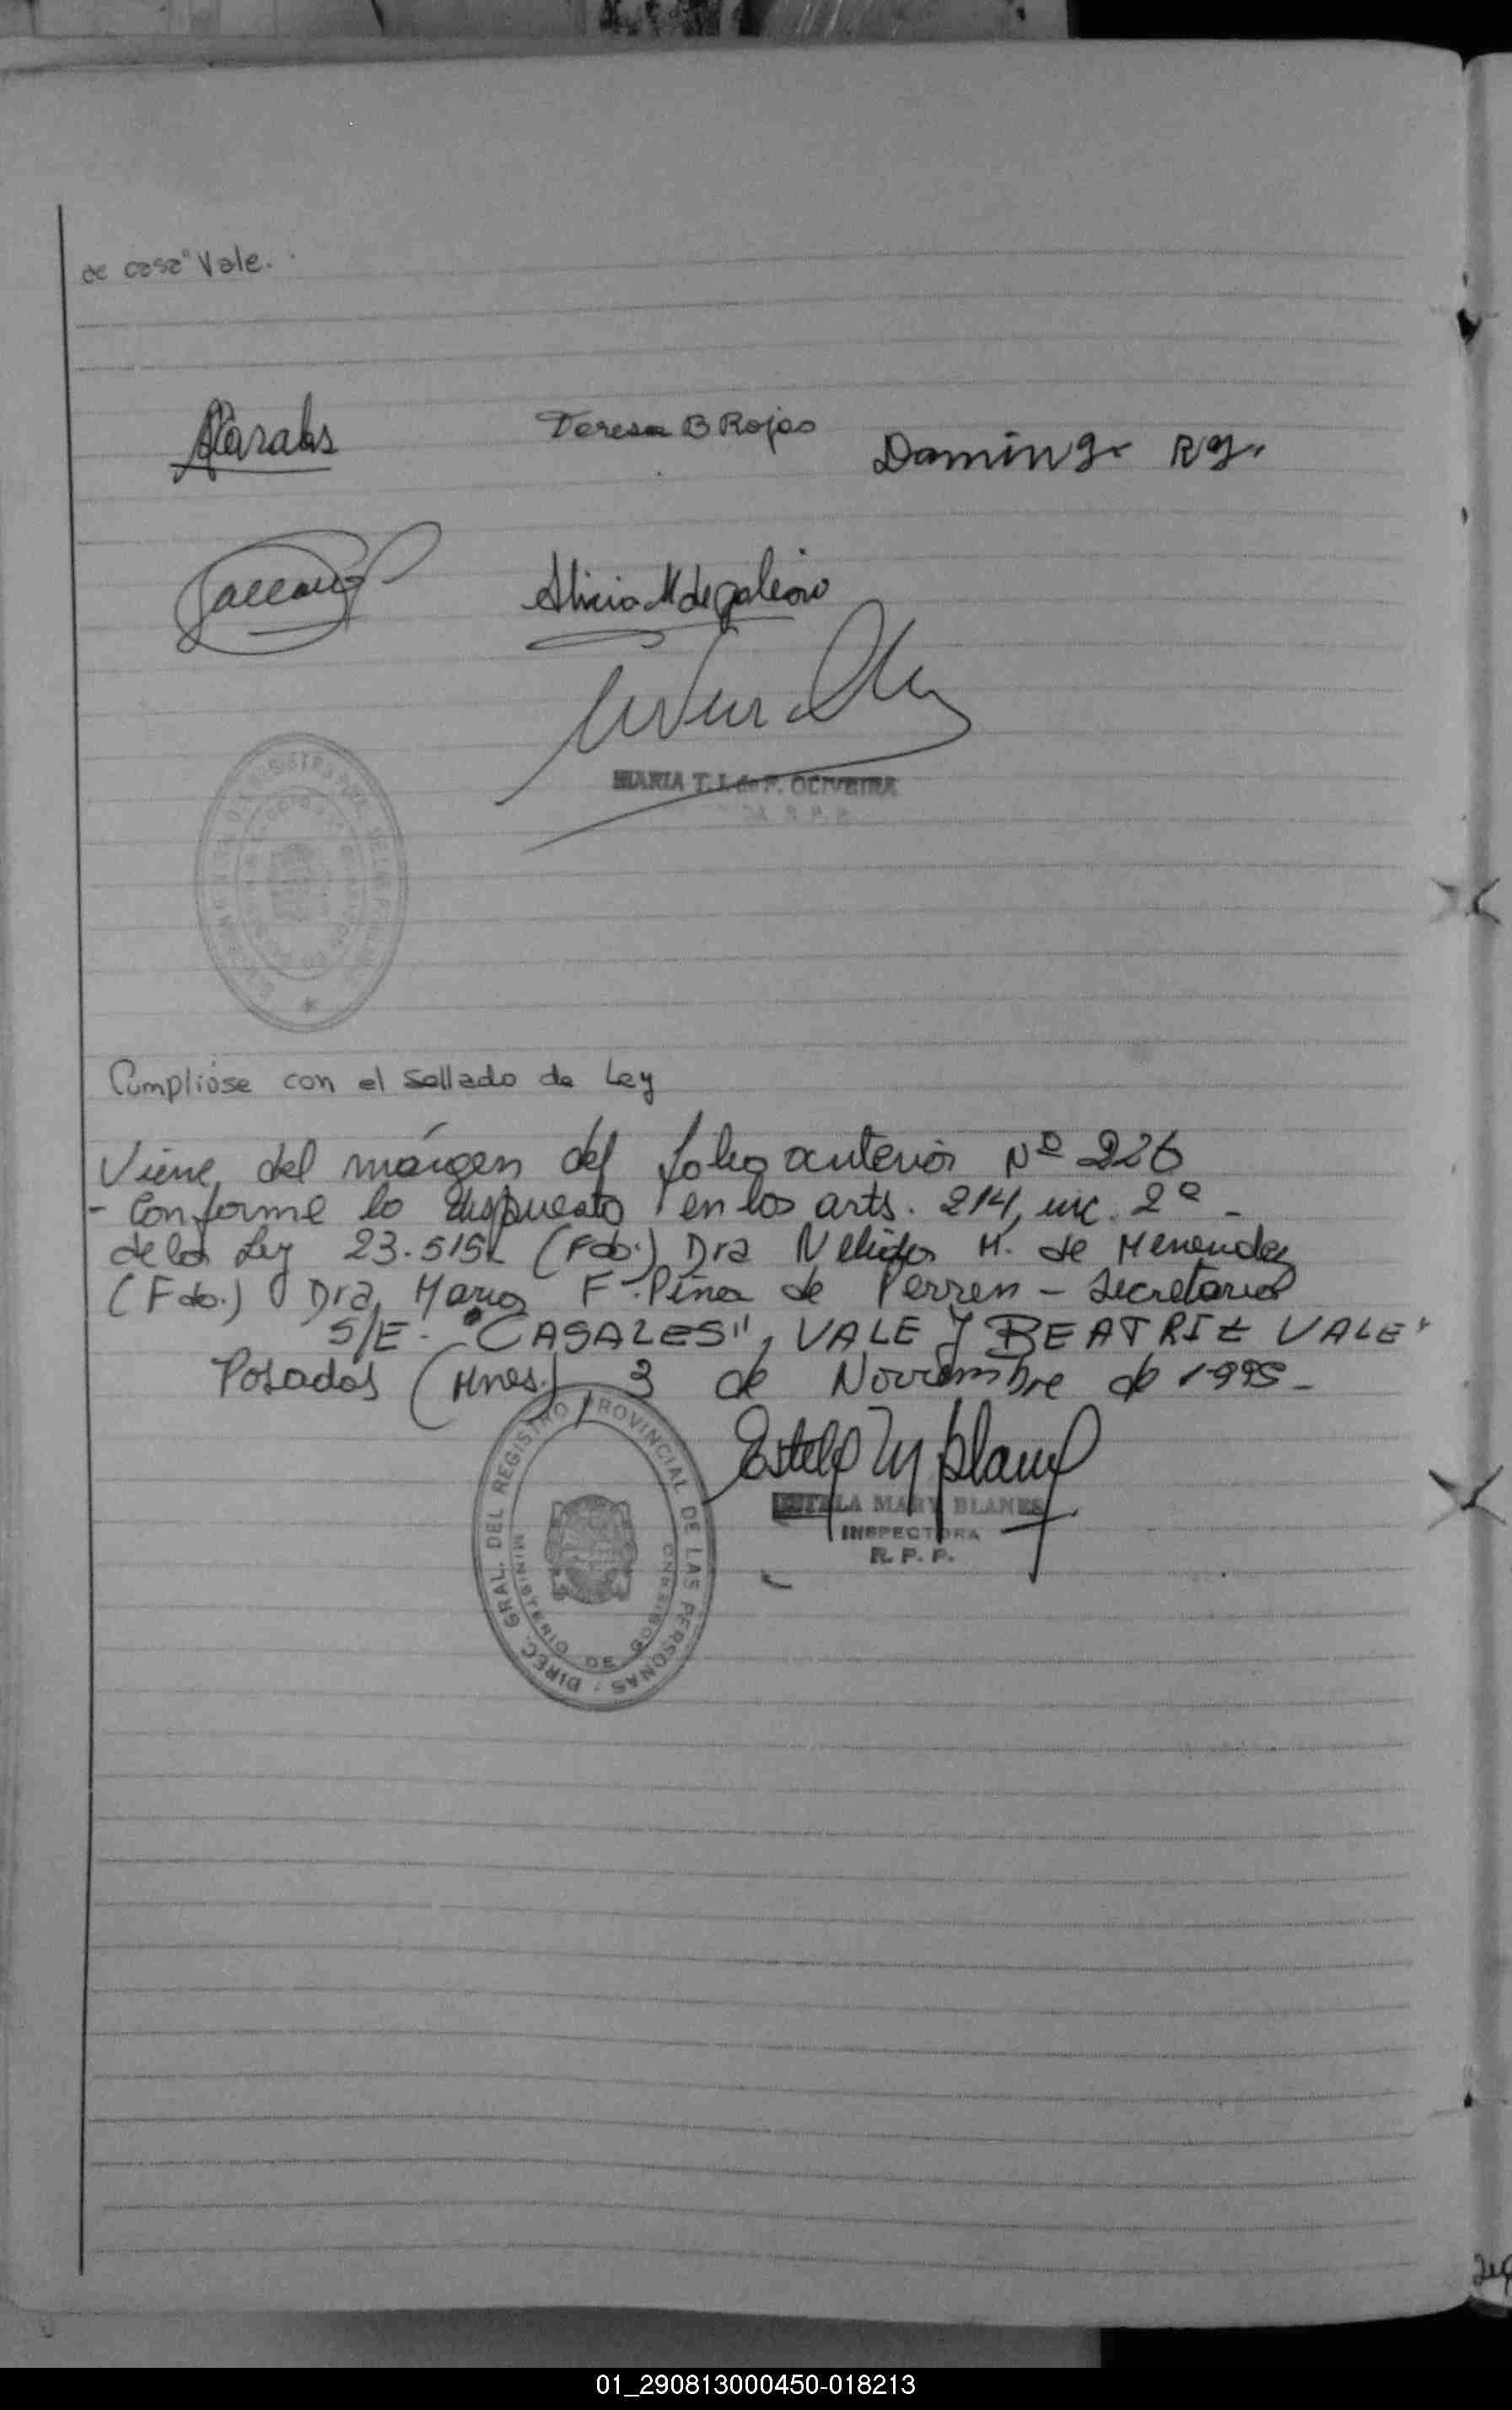 de casa" Vale.
Teresa B Rojas
Domingo
Alicia M de Galeano
MARIA T. I. de F. OLIVEIRA
Cumplióse con el Sellado de Ley
Viene del márgen del folio anterior Nº 226
- Conforme lo dispuesto en los arts. 214, inc. 2º -
de la Ley 23.515 (Fdo.) Dra Nelida M. de Menendez
(Fdo.) Dra Maria F. Pina de Perren - Secretaria
S/E. "CASALES", VALE y BEATRIZ VALE.
Posadas (Mnes.), 3 de Noviembre de 1995-
DIREC. GRAL. DEL REGISTRO PROVINCIAL DE LAS PERSONAS
MINISTERIO DE GOBIERNO
ESTELA MARY BLANES
INSPECTORA
R. P. P.
01_290813000450-018213